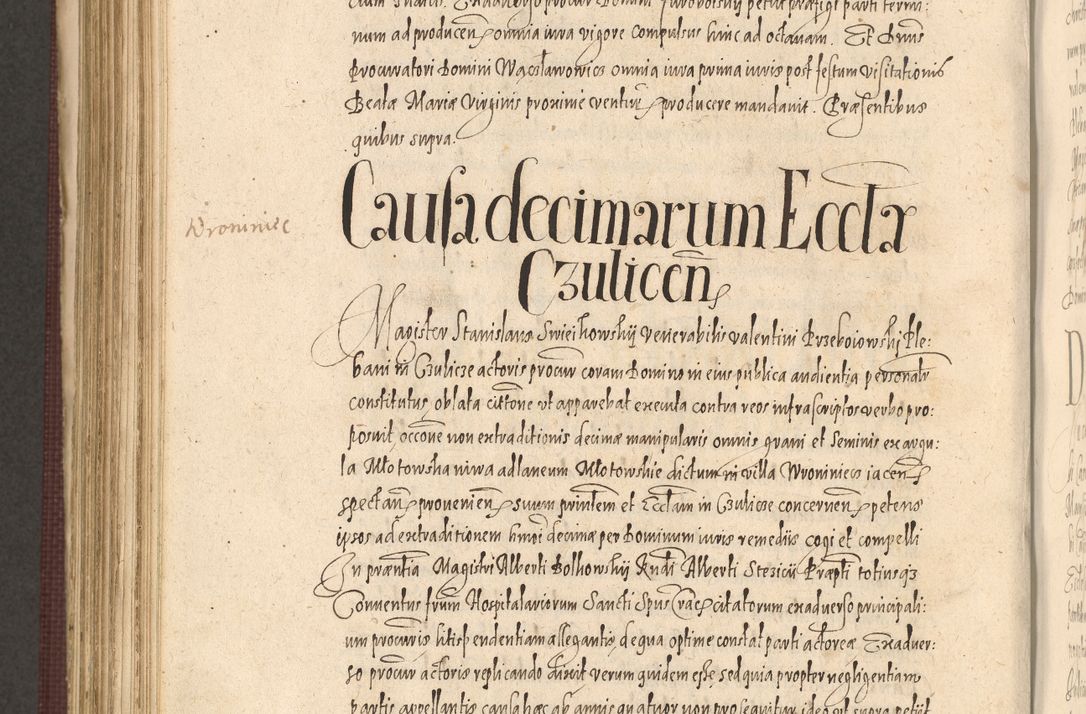 num ad producen omnia iura vigore compulsus hinc ad octavam. Et Dnus
Procuratori Domini Wączławowicz omnia iura prima iuris post festum Visitationis
Beatæ Mariæ Virginis proxime ventur producere mandavit. Præsentibus
quibus supra.
Causa decimarum Eccla
Czulicen
Wroniniec
Magister Stanislaus Swiechowskij venerabilis Valentini Przeboiowskj Ple:
bani in Czulicze actoris procur coram Domino in eius publica audientia personalr
constitutus, oblata cittone ut apparebat executa contra reos infrascriptos verbo pro:
posuit, occone non extraditionis decimæ manipularis omnis grani et seminis ex argu:
la Młotowska niwa ad laneum Młotowskie dictum in villa Wroniniecz iacen
spectan provenien suum prinlem et Ecclam in Czulicze concernen petens
ipsos ad extraditionem hmoi decimæ per Dominum iuris remediis cogi et compelli
In præntia Magistri Alberti Bolkowskij Kndi Alberti Stezicii Præpti totiusq3
Conventus frum Hospitalariorum Sancti Spus Crac citatorum ex adverso principali:
um procuris litispendentiam allegantis de qua optime constat parti actoreæ Ex adver:
so procur actoris replicando dixit verum quidem esse, sed quia propter negligentiam
partis appellantis causa hæc ab annis quatuor non prosequitur ideo ut supra petiit